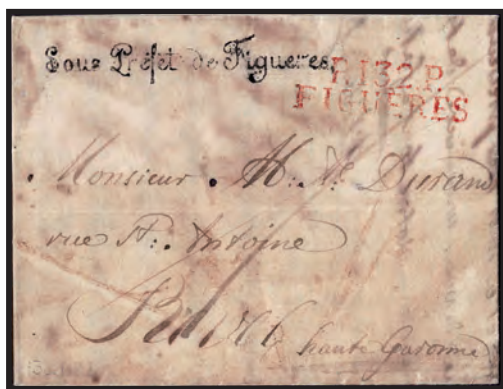 Sous Préfet de Figueres
P.132.P.
FIGUERES
Monsieur H. Durand
rue St. Antoine
haute Garonne